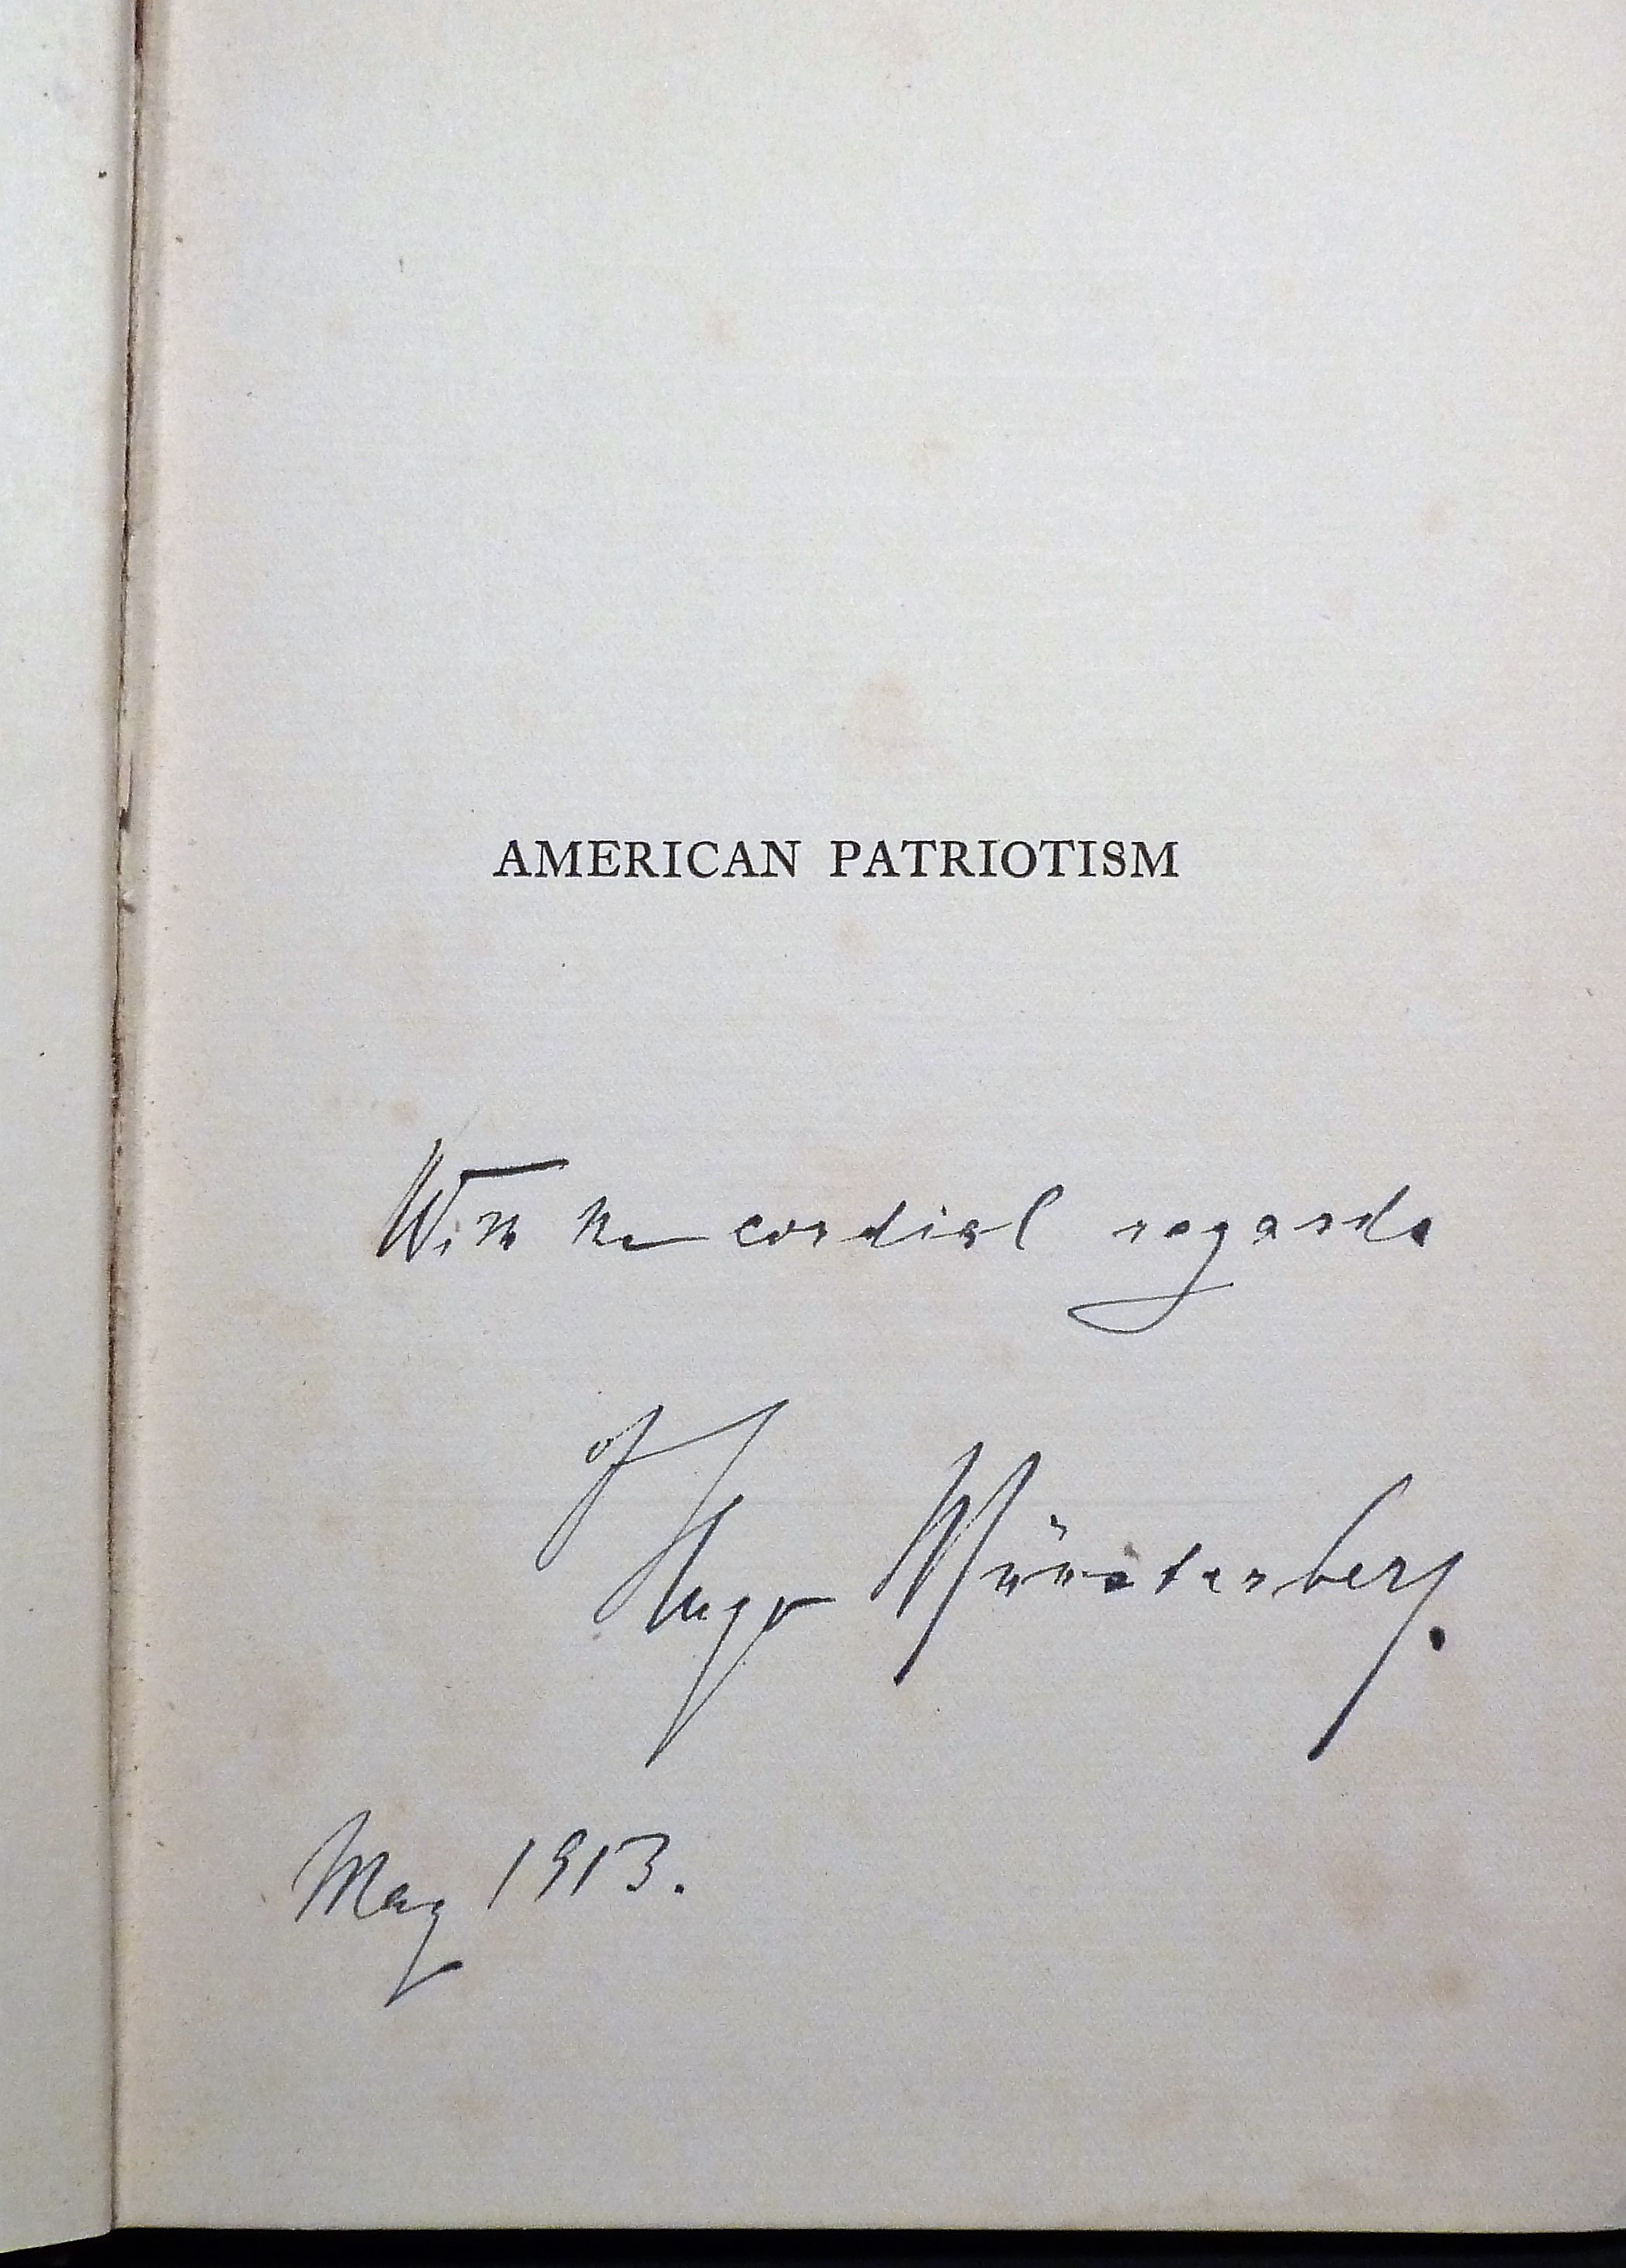 AMERICAN PATRIOTISM
With the cordial regards
of
Hugo Münsterberg.
May 1913.